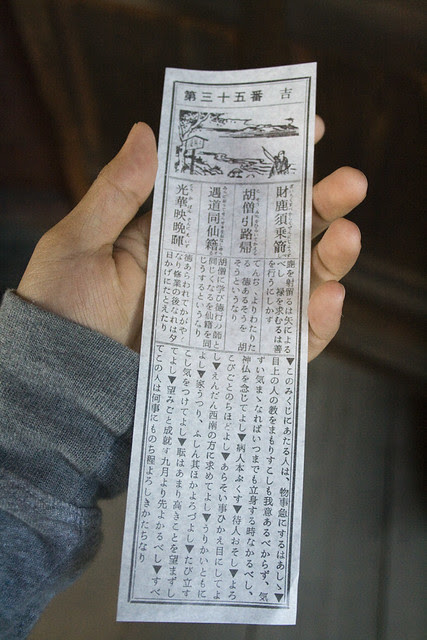 第三十五番 吉
財鹿須乗箭
鹿を射留るは矢による
べし、禄を求むるは善
を行うにしかず
胡僧引路帰
んぢくよりわたりた
る 徳あるそうを 胡
そうというなり
遇道同仙籍
胡僧に学び徳行の師と
同じくなるを仙籍を同
じうするというなり
光華映晩暉
徳あらわれてかがやく
なり修業の後なれは夕
日かげにたとえたり
▼このみくじにあたる人は、物事急にするはあしゝ▼
目上の人の教をまもりすこしも我意あるべからず、気
ずい気まゝなればいつまでも立身する時なかるべし、
神仏を念じてよし▼病人本ぷくす▼待人おそし▼よろ
こびごとのちほどよし▼あらそい事ひかえ目にしてよ
し▼えんだん西南の方に求めてよし▼うりかいともに
よし▼家うつり、ふしん其ほかよろづよし▼たび立す
こし気をつけてよし▼はあまり高きことを望まずし
てよし▼望みごと成就す九月より先よかるべし▼すべ
てこの人は何事にものち程よろしきかたちなり